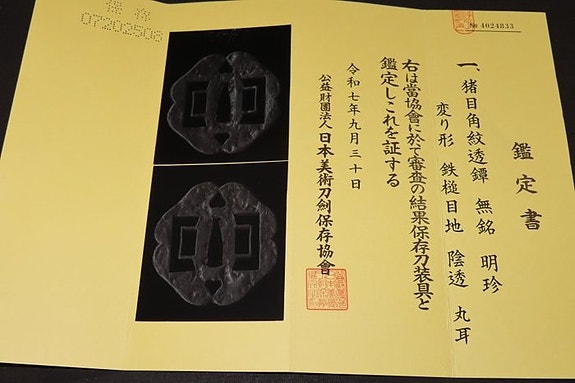 鑑定書
№ 4024833
一、猪目角紋透鐔 無銘 明珍
変り形 鉄槌目地 陰透 丸耳
右は當協會に於て審査の結果保存刀装具と
鑑定しこれを証する
令和七年九月三十日
公益財團法人 日本美術刀劍保存協會
保存
07202508